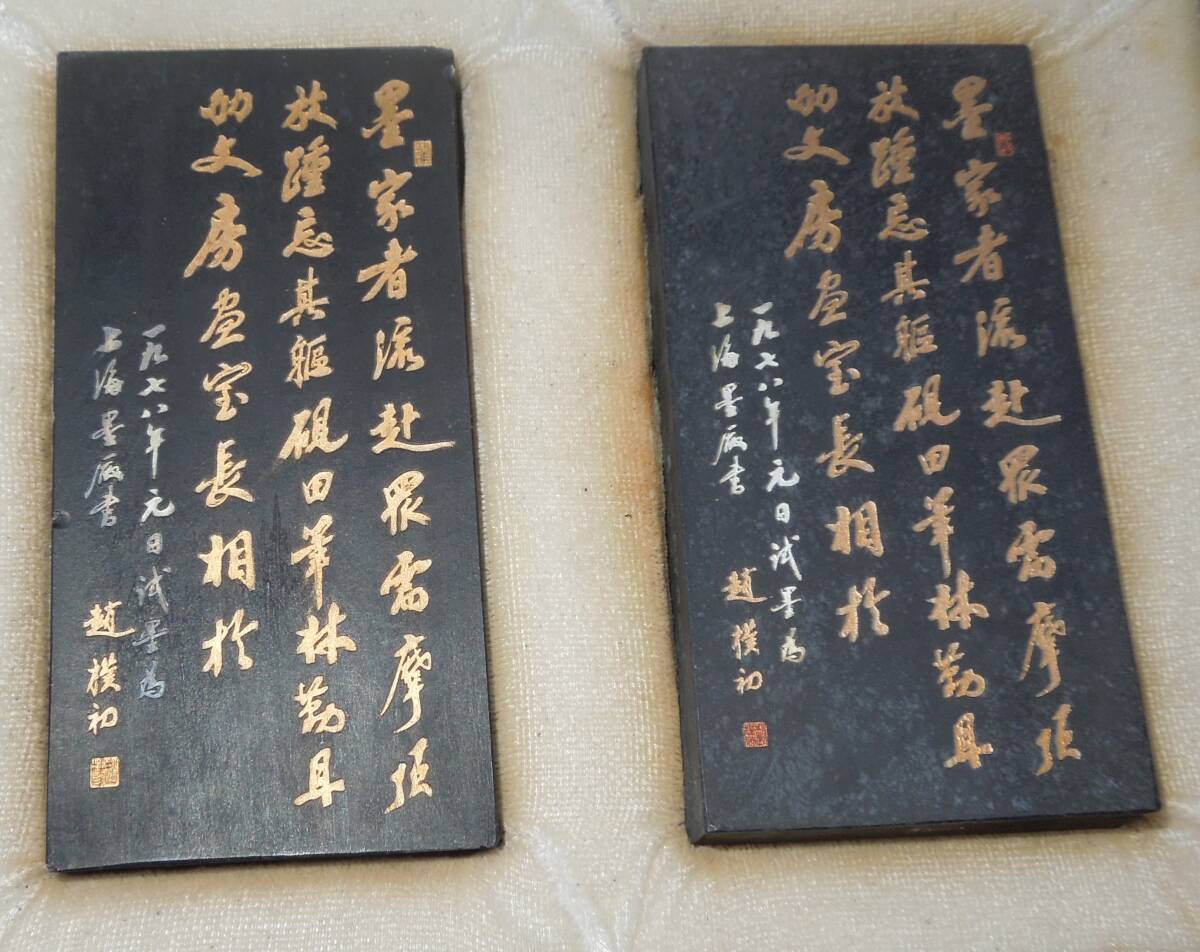 墨家者流赴眾需摩頂
放踵忘其軀硯田筆林勤且
劬文房画室長相於
一九七八年元日試墨為
上海墨厰書
趙樸初
墨家者流赴眾需摩頂
放踵忘其軀硯田筆林勤且
劬文房画室長相於
一九七八年元日試墨為
上海墨厰書
趙樸初